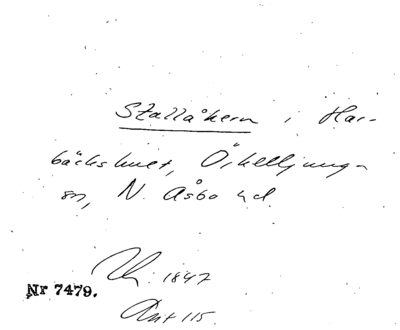 Stallåkern i Har-
bäckshult, Örkelljunga
sn, N. Åsbo hd.
1847
Nr 7479.
Ant 115